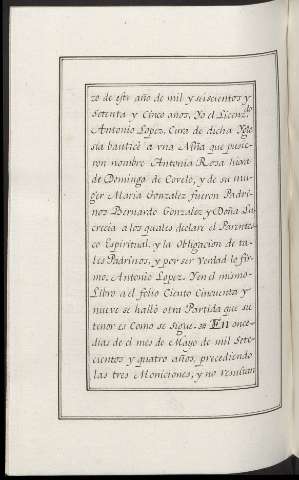 zo de este año de mil y seiscientos y
Setenta y Cinco años, Yo el Licenᵈᵒ
Antonio Lopez, Cura de dicha Ygle
sia bauticé a vna Niña que pusie-
ron nombre Antonia Rosa hixa
de Domingo de Covelo, y de su mu-
ger Maria Gonzalez fueron Padri-
nos Bernardo Gonzalez y Doña Lu-
crecia a los quales declare el Parentes-
co Espiritual, y la Obligacion de ta-
les Padrinos, y por ser Verdad lo fir-
mo. Antonio Lopez. Y en el mismo
Libro a el folio Ciento Cinquenta y
nueve se halló otra Partida que su
tenor es Como se sigue. En once-
dias de el mes de Mayo de mil Sete-
cientos y quatro años, precediendo
las tres Moniciones, y no resultan